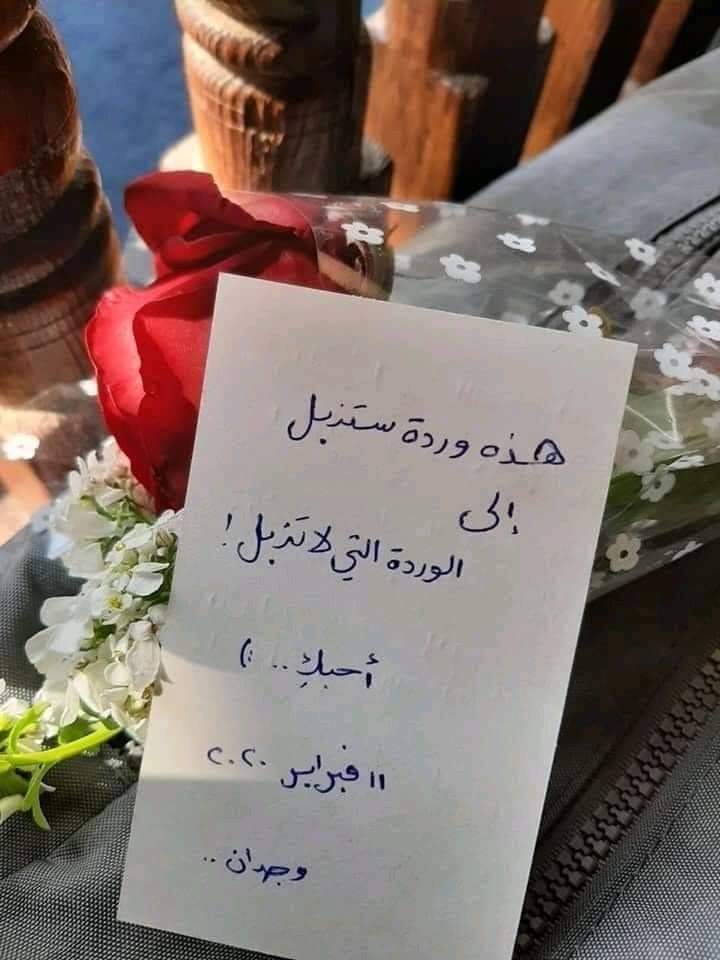 هذه وردة ستذبل
إلى
الوردة التي لا تذبل !
أحبكِ .. :)
١١ فبراير ٢٠٢٠
وجدان ..